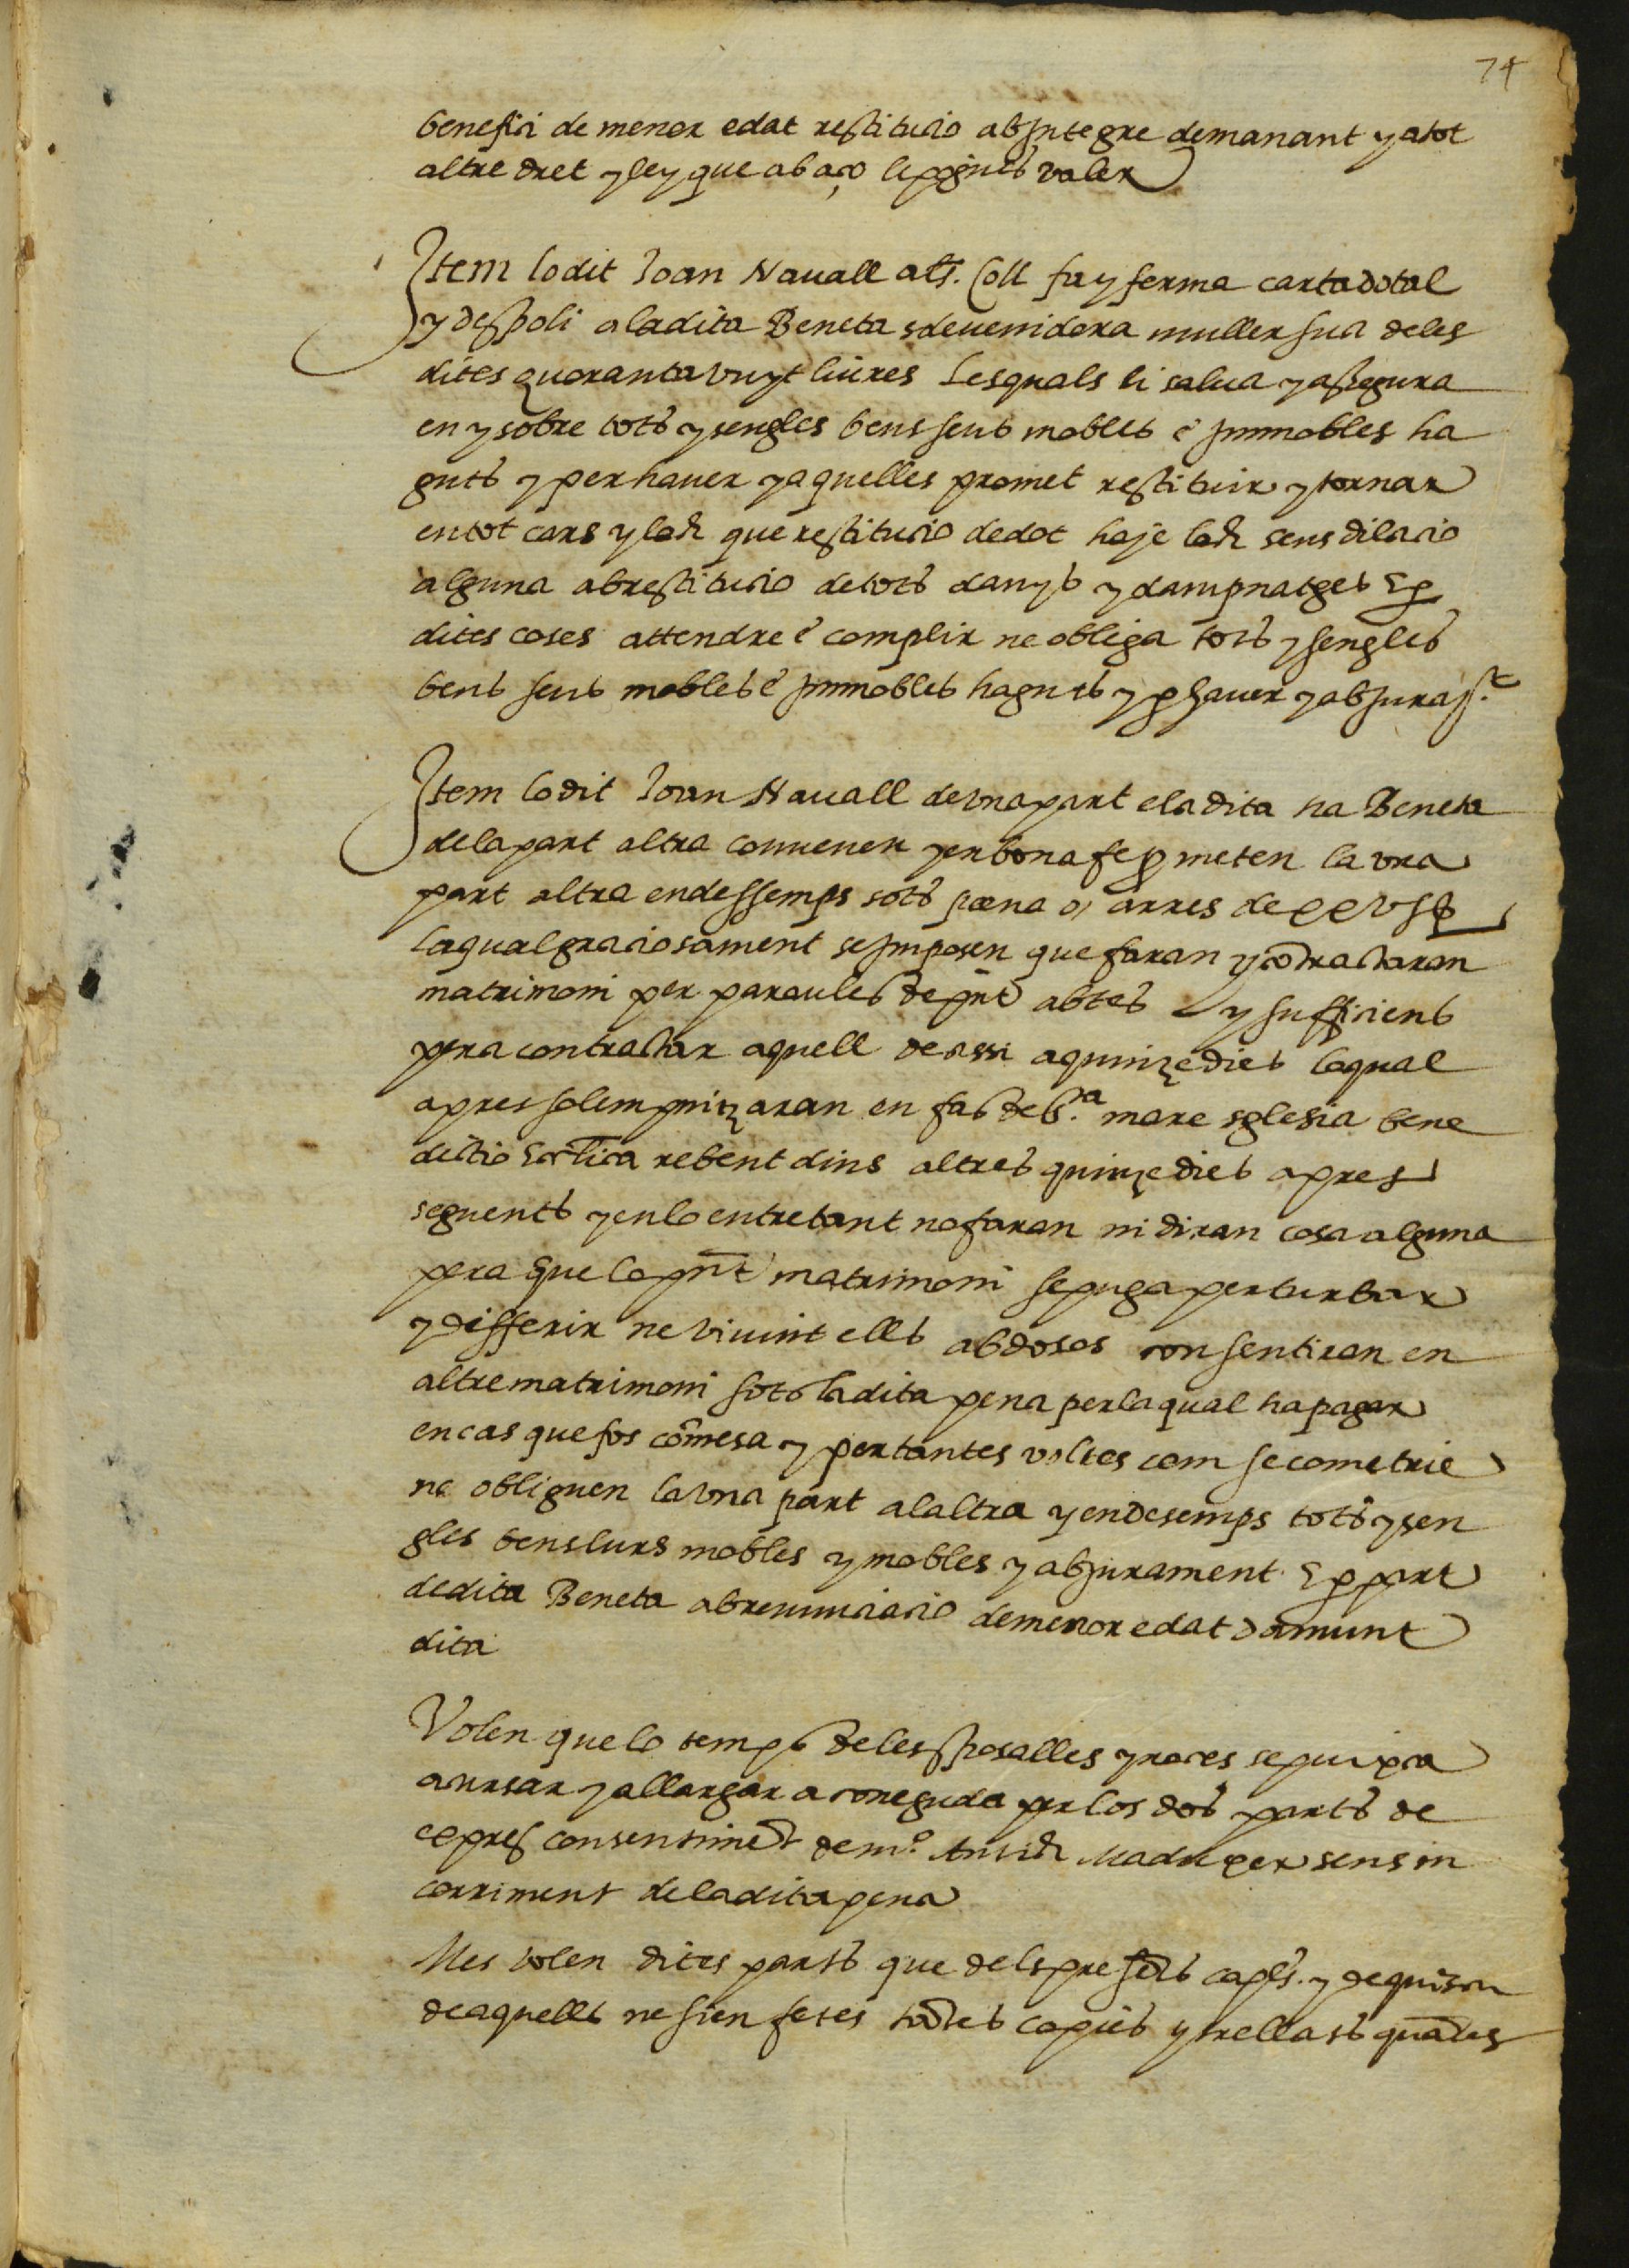 74
benefici de menor edat restitucio ab integre demanant y a tot
altre dret y ley que ab aço li pogues valer
Item lo dit Joan Nauall als. Coll fa y ferma carta dotal
y despoli a la dita Beneta sdeuenidora muller sua de les
dites quoranta vuyt liures Les quals li salua y assegura
en y sobre tots y sengles bens seus mobles e immobles ha
guts y per hauer y aquelles promet restituir y tornar
en tot cars y loch que restitucio de dot haje loch sens dilacio
alguna ab restitucio de tots danys y dampnatges E p
dites coses attendre e complir ne obliga tots y sengles
bens seus mobles e immobles haguts y p hauer y ab jurast
Item lo dit Joan Nauall de vna part e la dita na Beneta
de la part altra conuenen y en bona fe pmeten la vna
part altra endessemps sots pena o arres de
la qual graciosament se imposen que faran y cōtractaran
matrimoni per paraules de pnt abtes y sufficiens
pera contractar aquell de assi a quinze dies loqual
apres solempnizaran en fas de S.a mare sglesia bene
dictio rebent dins altres quinze dies apres
seguents y en lo entretant no faran ni diran cosa alguna
pera que lo pnt matrimoni se puga perturbar
y differir ne viuint ells abdosos consentiran en
altre matrimoni sots la dita pena per la qual ha pagar
en cas que fos cōmesa y per tantes voltes com se cometrie
ne obliguen la vna part a la altra y endesemps tots y sen
gles bens lurs mobles y mobles y ab jurament E p part
de dita Beneta ab renunciacio de menor edat damunt
dita
Volen que lo temps de les sposalles y noces se puixia
acursar y allargar a coneguda per los dos parts de
expres consentimēt de m.o Antich Madu per sens in
corriment de la dita pena
Mes volen dites parts que dels presēts capls. y de quiscu
de aquells ne sien fetes tātes copies y trellats quātes